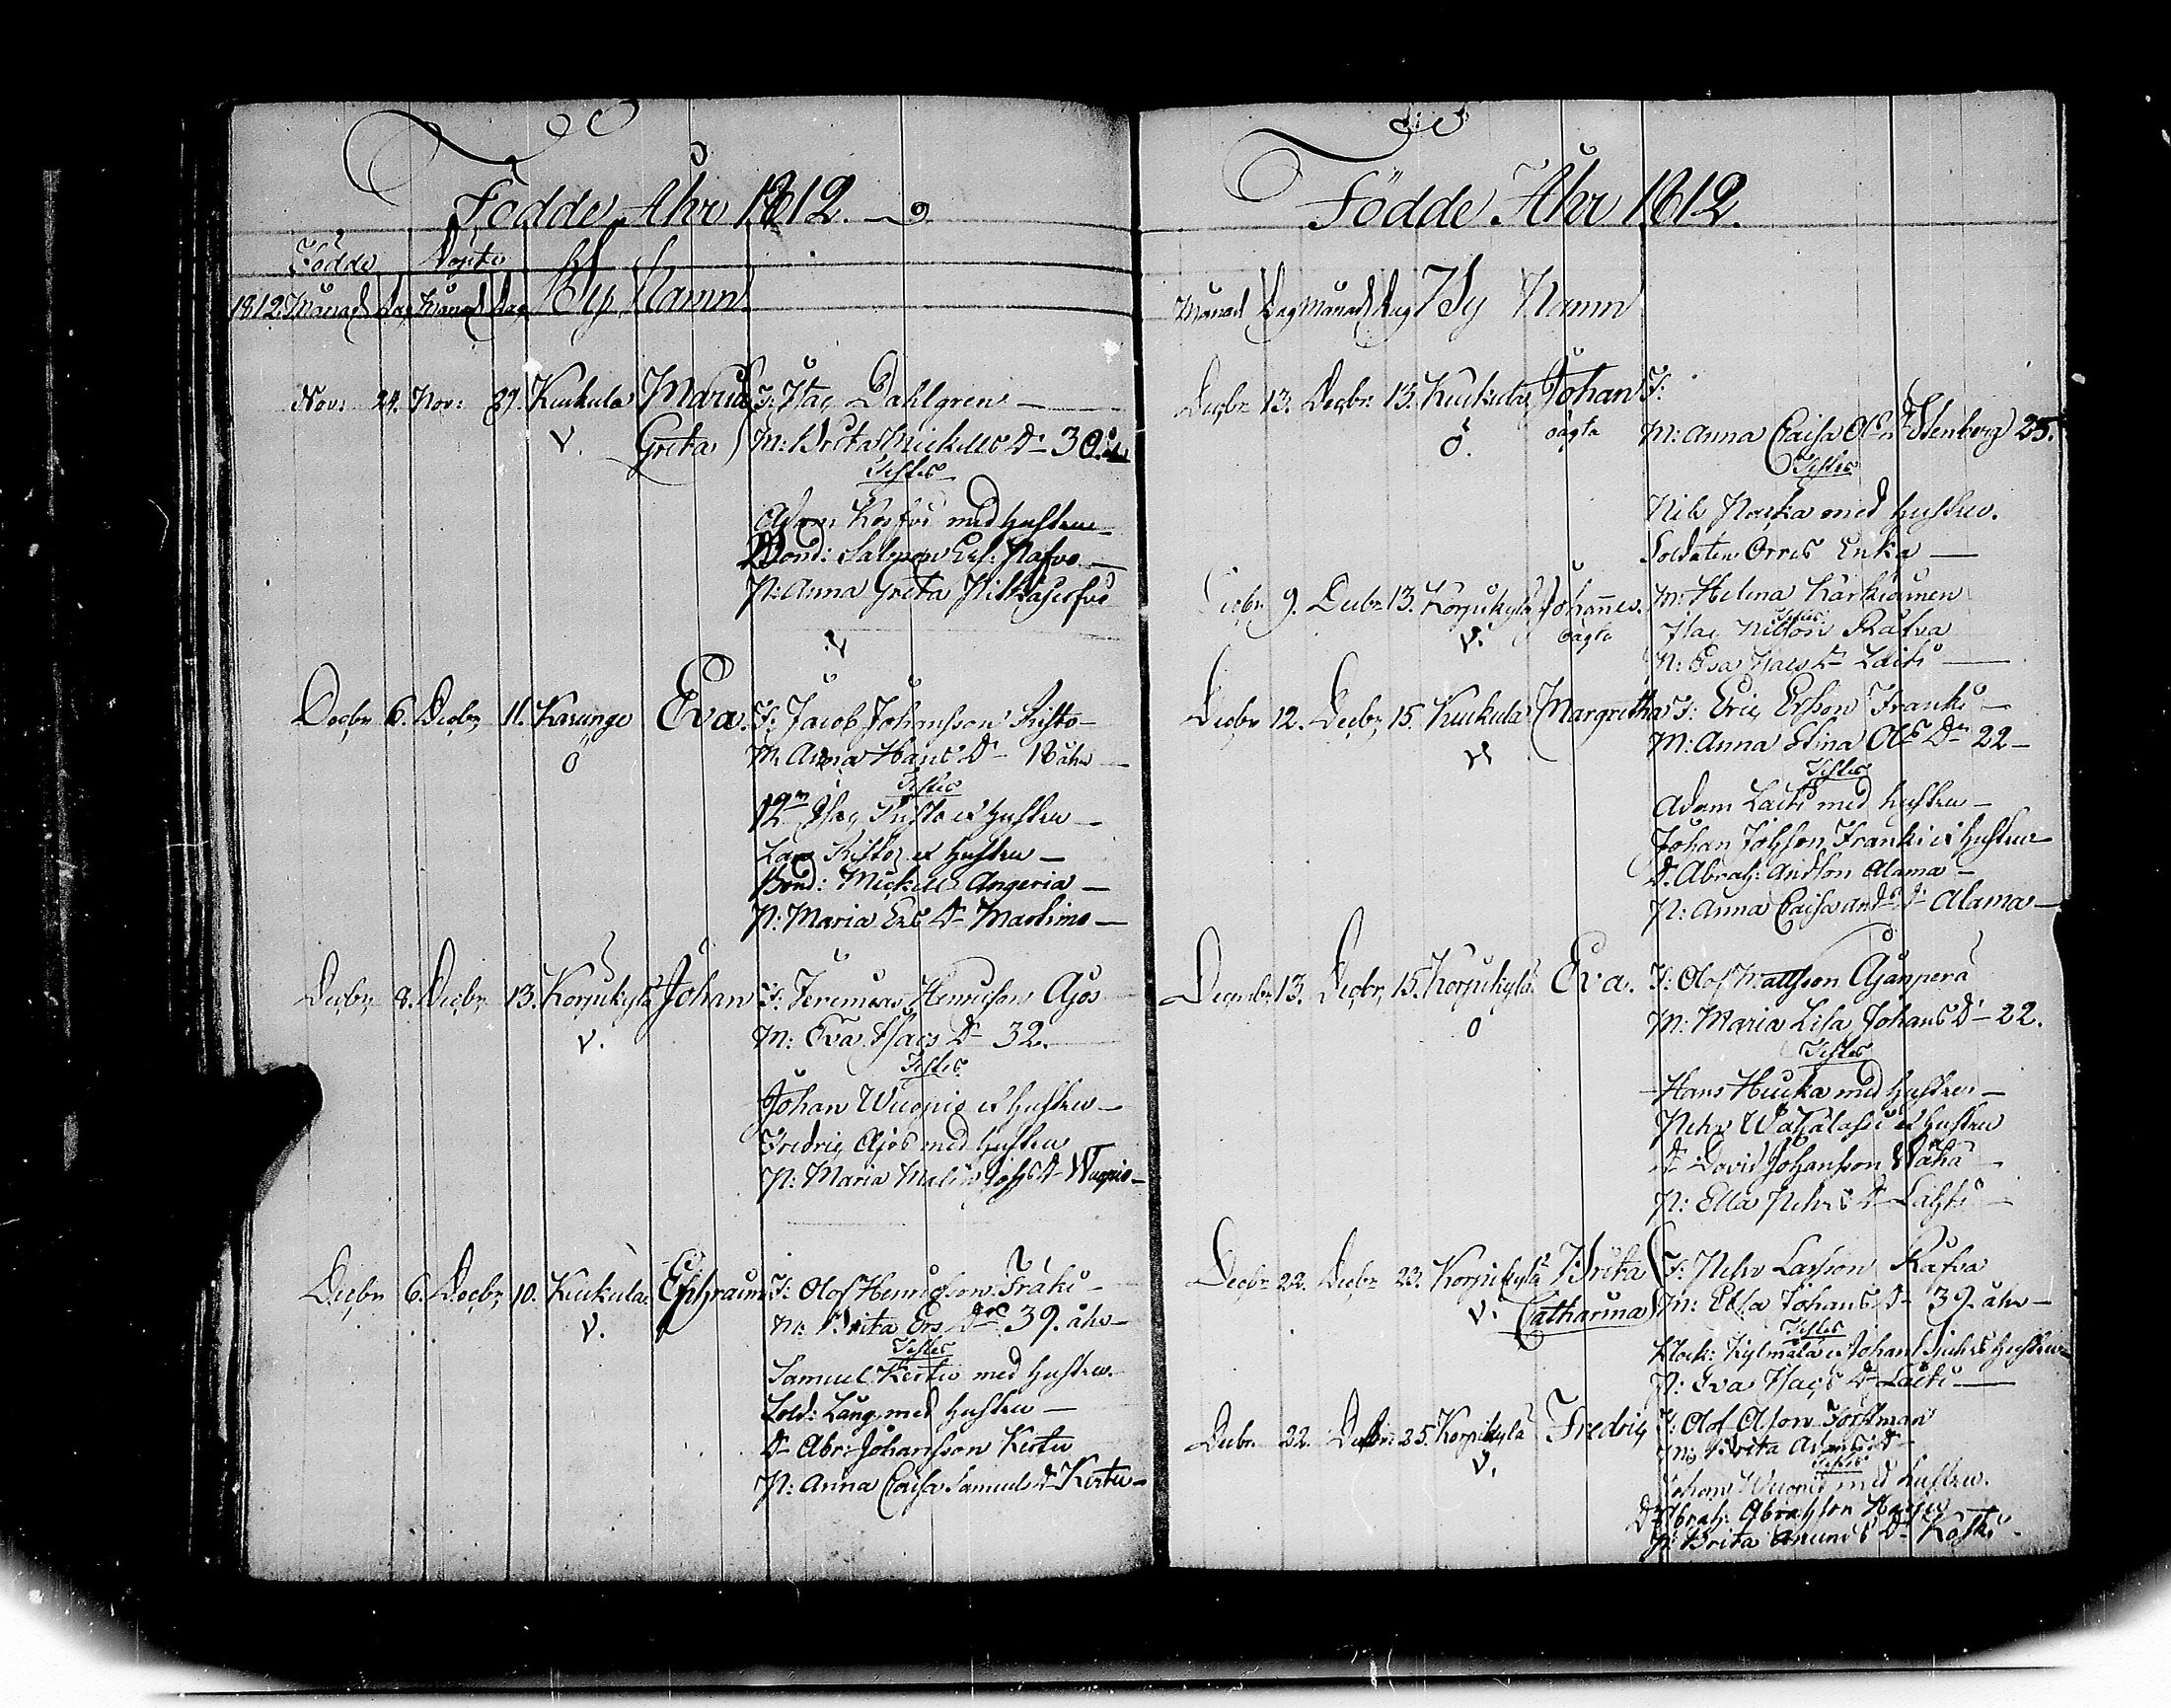 Födde Åhr 1812.
Födde Döpte
1812 Månad Dag Månad Dag By Namn
Nov: 24. Nov: 29. Kuckula Maria F: Isac Dahlgren
V. Greta M: Brita Mickels Dr 30.
Testes
Adam Korfvi med hustru
Bond: Salmon Ers: Rafvo
P: Anna Greta
V
Decbr 6. Decbr 11. Karungi Eva. F: Jacob Johansson Risto
Ö M: Anna Hans Dr 18 åhr
Testes
12m Isac Risto et hustru
Lars Risto et hustru
Bond: Mickel Angeria
P: Maria Ers Dr Martimo
Decbr 8. Decbr 13. Korpikylä Johan F: Jeremias Henricson Ajos
V. M: Eva Isacs Dr 32.
Testes
Johan Wuopio et hustru
Fredric Ajos med hustru
P: Maria Malin Johs Dr Wuopio
Decbr 6. Decbr 10. Kuckula Ephraim F: Olof Henricsson Fraki
V. M: Brita Ers Dr 39. åhr
Testes
Samuel Kertu med hustru.
Sold: Lång med hustru
Dr Abr: Johansson Kertu
P: Anna Caisa Samuels Dr Kertu
Födde Åhr 1812.
Månad Dag Månad Dag By Namn
Decbr 13. Decbr 13. Kuckula Johan F:
Ö. oägta M: Anna Caisa Ols Dr Stenberg 25.
Testes
Nils Narka med hustru.
Soldaten Orres Enka
Decbr 9. Decbr 13. Korpikylä Johannes. M: Helena Karkiainen
V. oägta Testes
Isac Nilsson Rafva
P: Eva Isacs Dr Laiti
Decbr 12. Decbr 15. Kuckula Margretha F: Eric Ersson Franki
V M: Anna Stina Ols Dr 22
Testes
Adam Laiti med hustru
Johan Johsson Franki et hustru
D. Abrah: Andson Alama
P: Anna Caisa Ands Dr Alama
Decembr 13. Decbr 15. Korpikylä Eva. F: Olof Mattsson Ajanperä
Ö M: Maria Lisa Johans Dr 22.
Testes
Hans Hucka med hustru
Pehr et hustru
Dr David Johansson Waha
P: Ella Pehrs Dr Lahti
Decbr 22. Decbr 23. Korpikylä Brita F: Pehr Larsson Rafva
V. Catharina M: Ella Johans Dr 39. åhr
Testes
Klock: Kylmälä et Johan hustru
P: Eva Isacs Dr Laiti
Decbr 22. Decbr 25. Korpikylä Fredric F: Olof Olson Forsman
V. M: Brita Dr
Testes
Johan Wuopio med hustru.
Dr Abrah: Abrahsson Harju
P: Brita Anunds Dr Koski